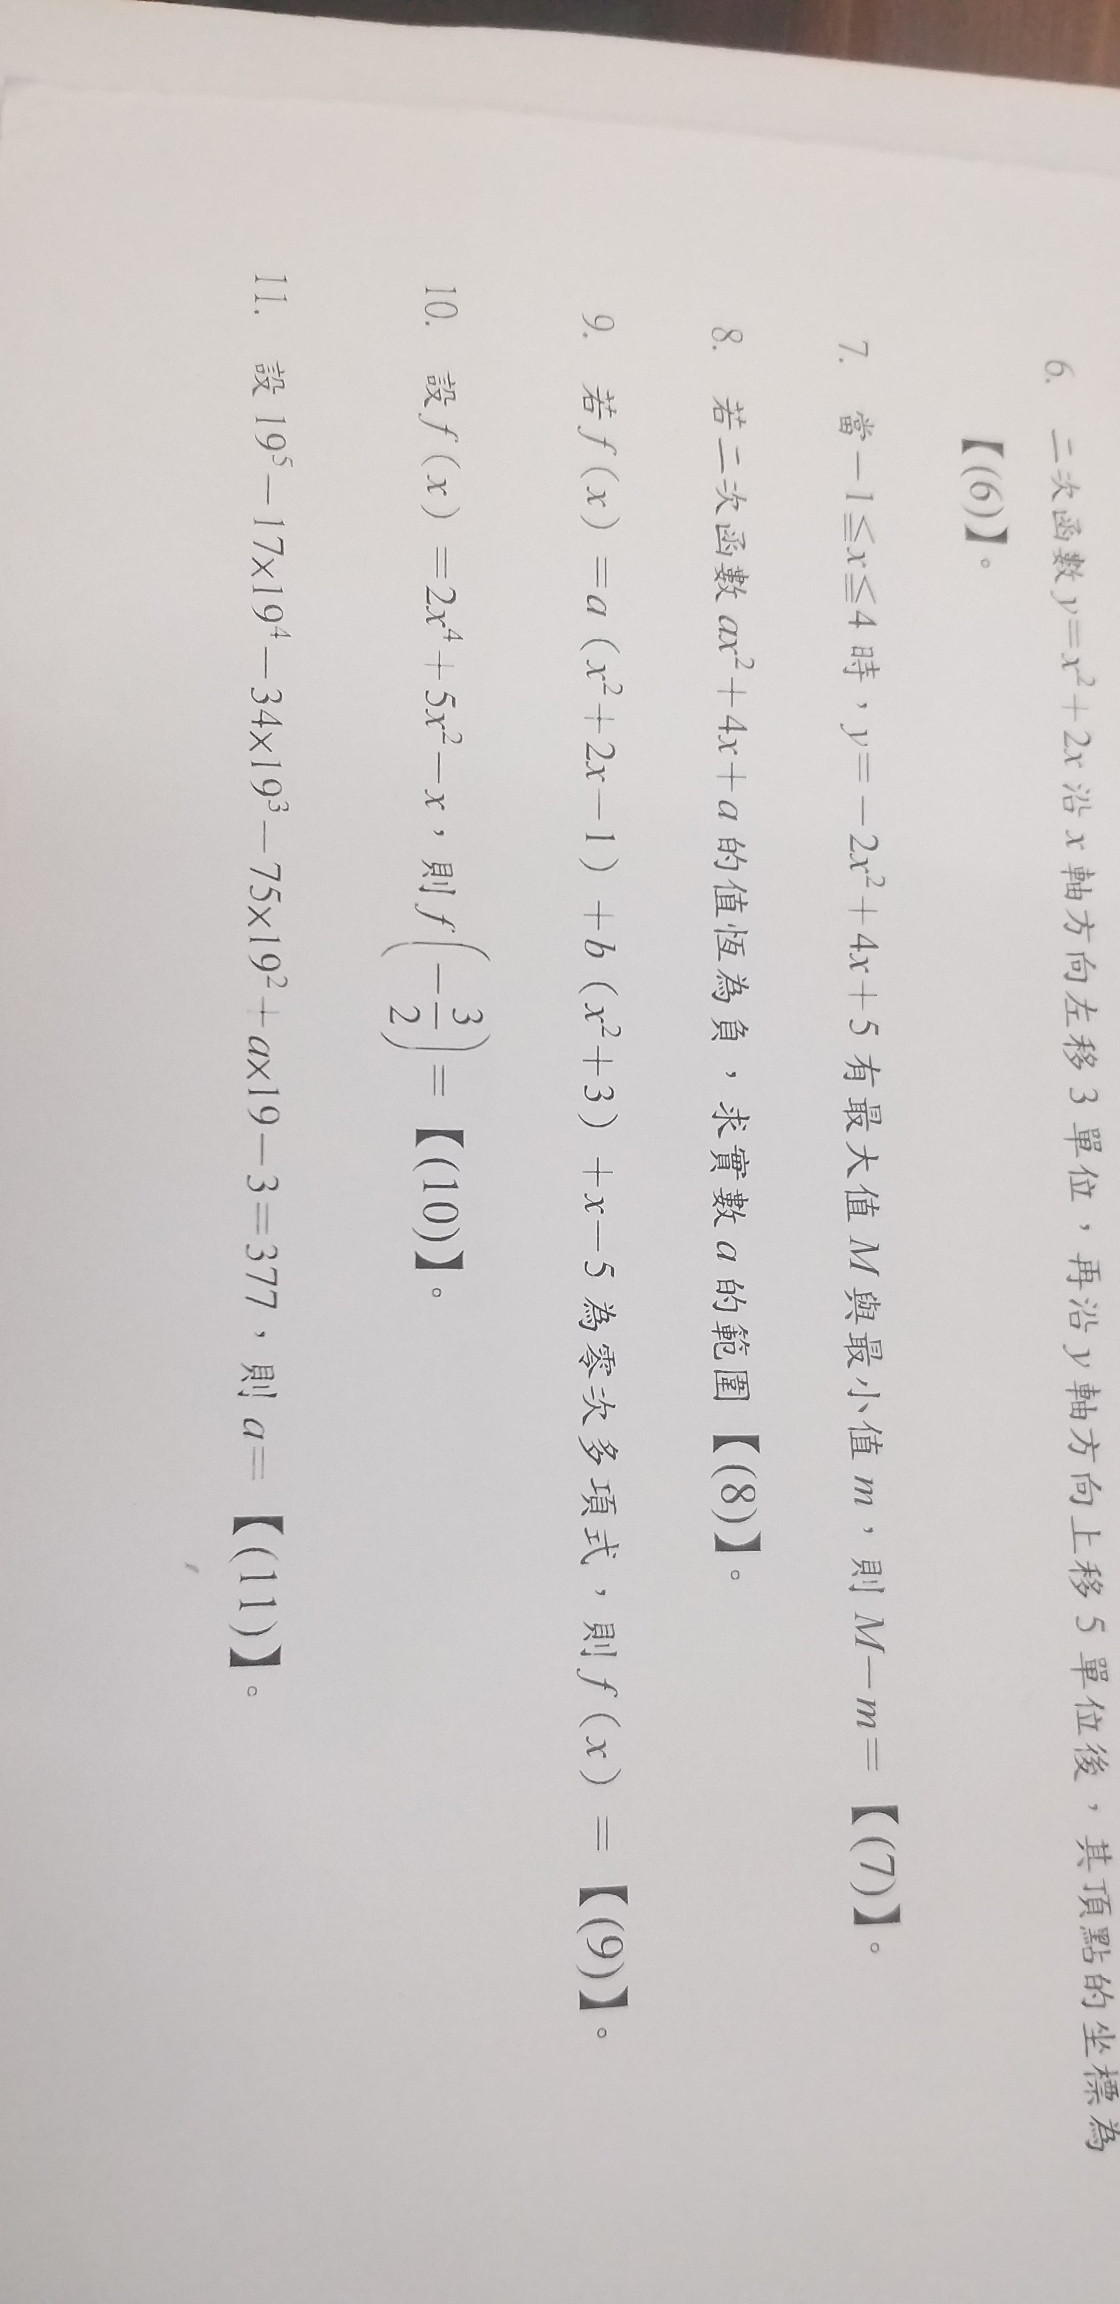 6. 二次函數 y=x²+2x 沿 x 軸方向左移 3 單位，再沿 y 軸方向上移 5 單位後，其頂點的坐標為
【(6)】。
7. 當－1≦x≦4 時，y=－2x²+4x+5 有最大值 M 與最小值 m，則 M－m=【(7)】。
8. 若二次函數 ax²+4x+a 的值恆為負，求實數 a 的範圍【(8)】。
9. 若 f(x)=a(x²+2x－1)+b(x²+3)+x－5 為零次多項式，則 f(x)=【(9)】。
10. 設 f(x)=2x⁴+5x²－x，則 f(－3/2)=【(10)】。
11. 設 19⁵－17×19⁴－34×19³－75×19²+a×19－3=377，則 a=【(11)】。